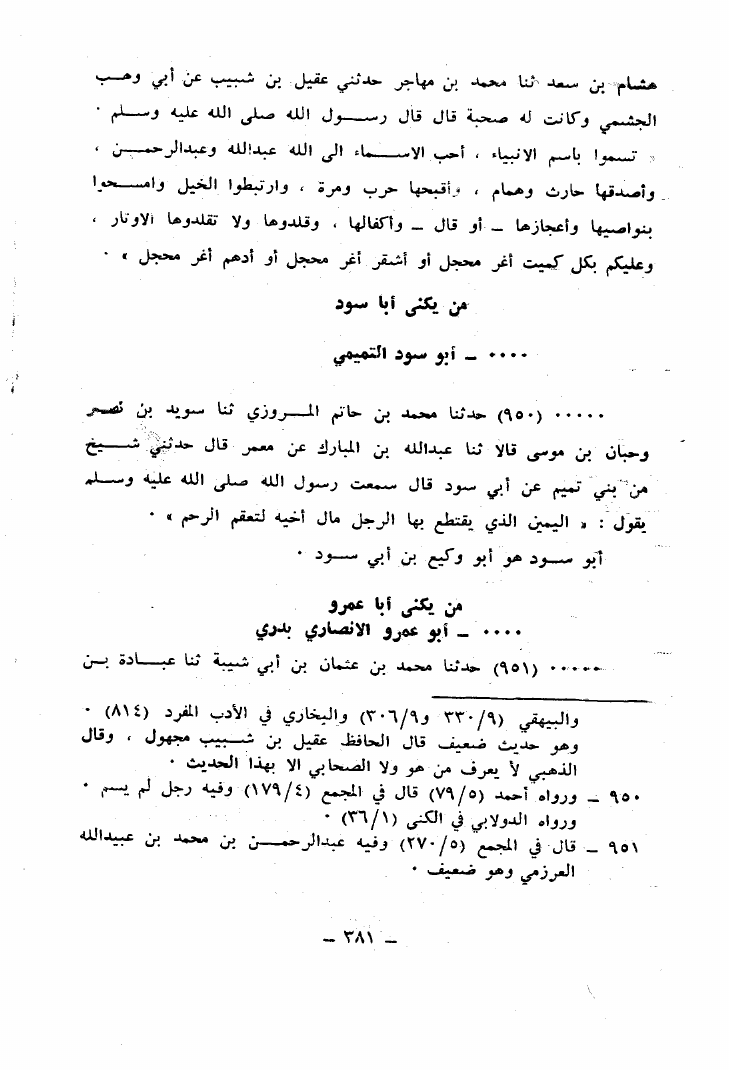 هشام بن سعد ثنا محمد بن مهاجر حدثني عقيل بن شبيب عن أبي وهب
الجشمي وكانت له صحبة قال قال رسول الله صلى الله عليه وسلم ٠
« تسموا باسم الانبياء ، أحب الاسماء الى الله عبدالله وعبدالرحمن ،
وأصدقها حارث وهمام ، وأقبحها حرب ومرة ، وارتبطوا الخيل وامسحوا
بنواصيها وأعجازها ــ أو قال ــ وأكفالها ، وقلدوها ولا تقلدوها الاوتار ،
وعليكم بكل كميت أغر محجل أو أشقر أغر محجل أو أدهم أغر محجل » ٠
من يكنى أبا سود
٠٠٠٠ ــ أبو سود التميمي
٠٠٠٠٠ (٩٥٠) حدثنا محمد بن حاتم المروزي ثنا سويد بن نصر
وحبان بن موسى قالا ثنا عبدالله بن المبارك عن معمر قال حدثني شيخ
من بني تميم عن أبي سود قال سمعت رسول الله صلى الله عليه وسلم
يقول : « اليمين الذي يقتطع بها الرجل مال أخيه لتعقم الرحم » ٠
أبو سود هو أبو وكيع بن أبي سود ٠
من يكنى أبا عمرو
٠٠٠٠ ــ أبو عمرو الانصاري بدري
٠٠٠٠٠ (٩٥١) حدثنا محمد بن عثمان بن أبي شيبة ثنا عبادة بن
والبيهقي (٣٣٠/٩ و٣٠٦/٩) والبخاري في الأدب المفرد (٨١٤) ٠
وهو حديث ضعيف قال الحافظ عقيل بن شبيب مجهول ، وقال
الذهبي لا يعرف من هو ولا الصحابي الا بهذا الحديث ٠
٩٥٠ ــ ورواه أحمد (٧٩/٥) قال في المجمع (١٧٩/٤) وفيه رجل لم يسم ٠
ورواه الدولابي في الكنى (٣٦/١) ٠
٩٥١ ــ قال في المجمع (٢٧٠/٥) وفيه عبدالرحمن بن محمد بن عبيدالله
العرزمي وهو ضعيف ٠
ــ ٣٨١ ــ